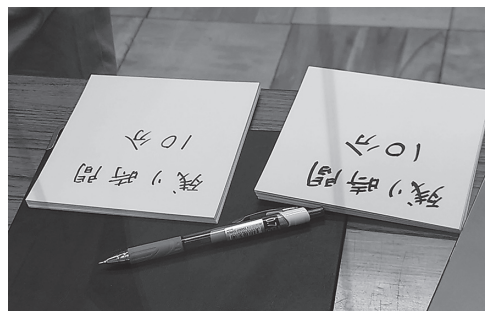 残り時間
10分
残り時間
10分